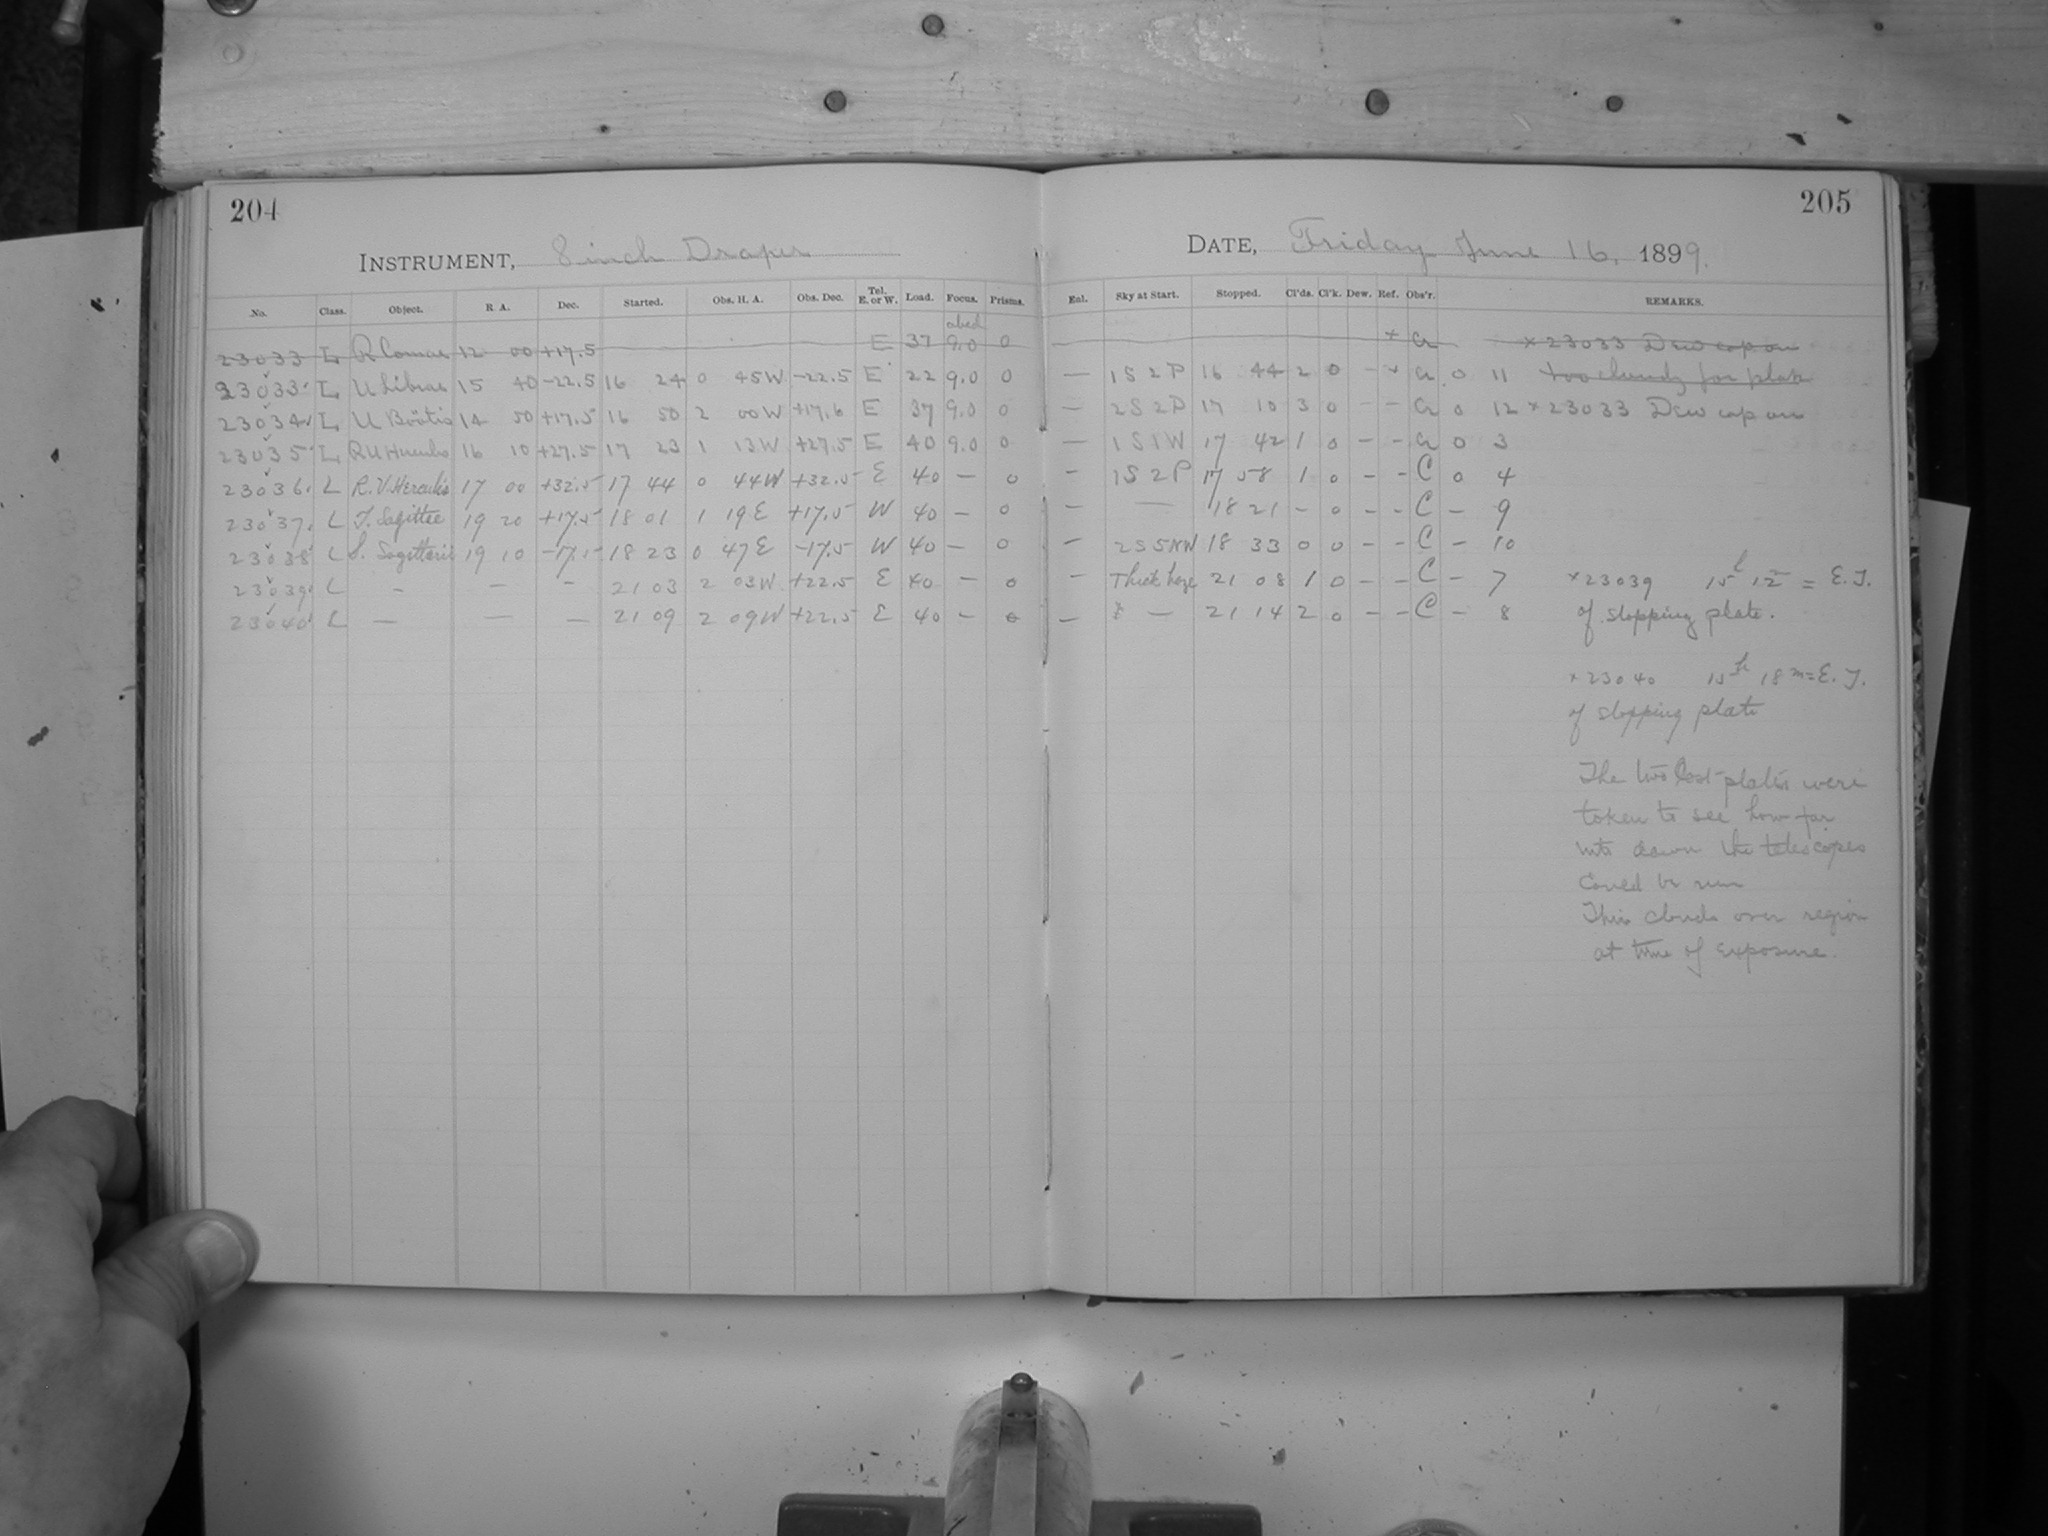 204
INSTRUMENT, 8 inch Draper
No. Class. Object. R. A. Dec. Started. Obs. H. A. Obs. Dec. Tel. E. or W. Load. Focus. Prisms.
23033 L R Comae 12 00 +17.5 E 37 9.0 0
23033 L U Librae 15 40 -22.5 16 24 0 45W -22.5 E 22 9.0 0
23034 L U Boötis 14 50 +17.5 16 50 2 00W +17.6 E 37 9.0 0
23035 L RU Herculis 16 10 +27.5 17 23 1 13W +27.5 E 40 9.0 0
23036 L R.V. Herculis 17 00 +32.5 17 44 0 44W +32.5 E 40 — 0
23037 L T. Sagittae 19 20 +17.5 18 01 1 19E +17.5 W 40 — 0
23038 L S. Sagittarii 19 10 -17.5 18 23 0 47E -17.5 W 40 — 0
23039 L — — — 21 03 2 03W +22.5 E 40 — 0
23040 L — — — 21 09 2 09W +22.5 E 40 — 0
205
DATE, Friday June 16, 1899.
Enl. Sky at Start. Stopped. Cl'ds. Cl'k. Dew. Ref. Obs'r. REMARKS.
— × Cr × 23033 Dew cap on
— 1S 2P 16 44 2 0 - Cr 0 11 too cloudy for plate
— 2S 2P 17 10 3 0 - - Cr 0 12 × 23033 Dew cap on
— 1S 1W 17 42 1 0 - - Cr 0 3
— 1S 2P 17 58 1 0 - - C 0 4
— — 18 21 - 0 - - C - 9
— 2S 5NW 18 33 0 0 - - C - 10
— Thick haze 21 08 1 0 - - C - 7 × 23039 15h 12 = E. T.
— — 21 14 2 0 - - C - 8 of stopping plate.
× 23040 15h 18m = E. T.
of stopping plate
The two last plates were
taken to see how far
into dawn the telescopes
could be run
Thin clouds over region
at time of exposure.